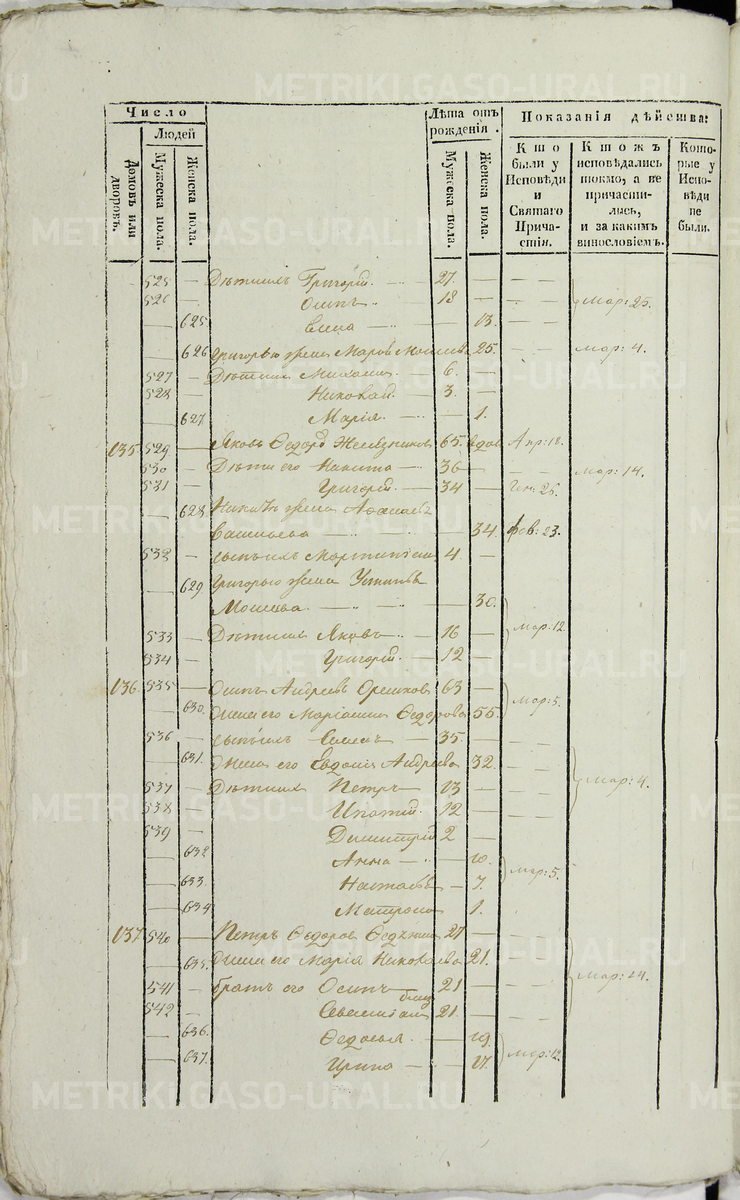 Число
Людей
Домовъ или дворовъ.
Мужеска пола.
Женска пола.
Лѣта отъ рожденія.
Мужеска пола.
Женска пола.
Показанія дѣйства:
Кто были у Исповѣди и Святаго Причастія.
Ктожъ исповѣдались токмо, а не причастились, и за какимъ винословіемъ.
Которые у Исповѣди не были.
525 — Дѣти ихъ Григорій 27 —
526 — Осипъ 18 — Мар: 25.
— 625 Елена — 13.
— 626 Григорью жена Мавра 25. Мар: 4.
527 — Дѣти ихъ Михаилъ 6. —
528 — Николай 3. —
— 627 Марія — 1.
135. 529 — Яковъ Ѳедоровъ Железниковъ 65 вдов Апр: 18.
530 — Дѣти его Никита 36 — Мар: 14.
531 — Григорій 34 — Ген: 25.
— 628 Никитѣ жена
Васильева — 34 Фев: 23.
532 — сынъ ихъ 4. —
— 629 Григорью жена
— 30.
533 — Дѣти ихъ Яковъ 16 — Мар: 12
534 — Григорій 12 —
136. 535 — Осипъ Андреевъ Орешковъ 63 — Мар: 5.
— 630. жена его Ѳедорова 55.
536 — сынъ ихъ 35 —
— 631. жена его Евдокія Андреева 32. Мар: 4.
537 — Дѣти ихъ Петръ 13 —
538 — Ипатій 12 —
539 — Димитрій 2 —
— 632 Анна — 10.
— 633. Настасья — 7. Мар: 5.
— 634 Матрона 1.
137 540 — Петръ Ѳедоровъ 27 —
— 635. жена его Марія Николаева 21.
541 — братъ его Осипъ 21 — Мар: 24.
542 — 21. —
близ
— 636. Ѳедосья — 19.
— 637. Ирина — 17. Мар: 12.
METRIKI.GASO-URAL.RU